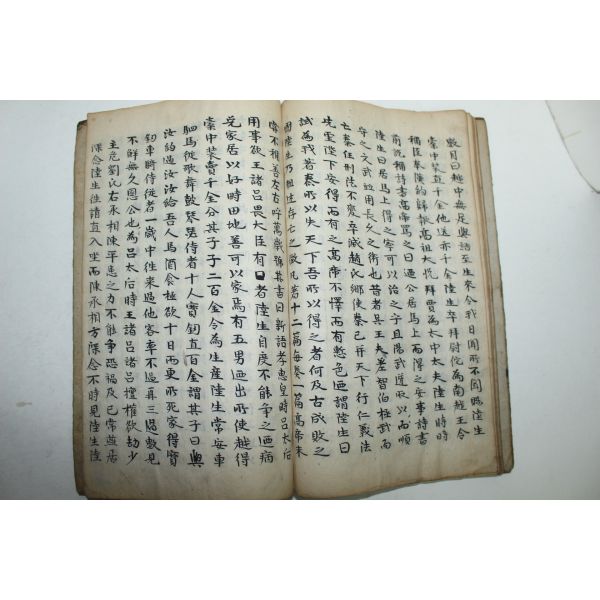 數月曰越中無足與語至生來令我日聞所不聞賜陸生
槖中裝直千金他送亦千金陸生卒拜尉佗為南越王令
稱臣奉漢約歸報高祖大悅拜賈為太中大夫陸生時時
前說稱詩書高帝罵之曰迺公居馬上而得之安事詩書
陸生曰居馬上得之寧可以治之乎且湯武逆取以而順
守之文武並用長久之術也昔者吳王夫差智伯極武而
亡秦任刑法不變卒滅趙氏鄉使秦已并天下行仁義法
先聖陛下安得而有之高帝不懌而有慙色迺謂陸生曰
試為我著秦所以失天下吾所以得之者何及古成敗之
國陸生乃粗述存亡之徵凡著十二篇每奏一篇高帝未
嘗不稱善左右呼萬歲號其書曰新語孝惠皇時呂太后
用事欲王諸呂畏大臣有口者陸生自度不能爭之迺病
免家居以好畤田地善可以家焉有五男迺出所使越得
槖中裝賣千金分其子子二百金令為生産陸生常安車
駟馬從歌舞鼓琴瑟侍者十人寶劍直百金謂其子曰與
汝約過汝汝給吾人馬酒食極欲十日而更所死家得寶
劍車騎侍從者一歲中往來過他客率不過再三過數見
不鮮無久慁公也為呂太后時王諸呂諸呂擅權欲劫少
主危劉氏右丞相陳平患之力不能爭恐禍及已常燕居
深念陸生往請直入坐而陳丞相方深念不時見陸生陸